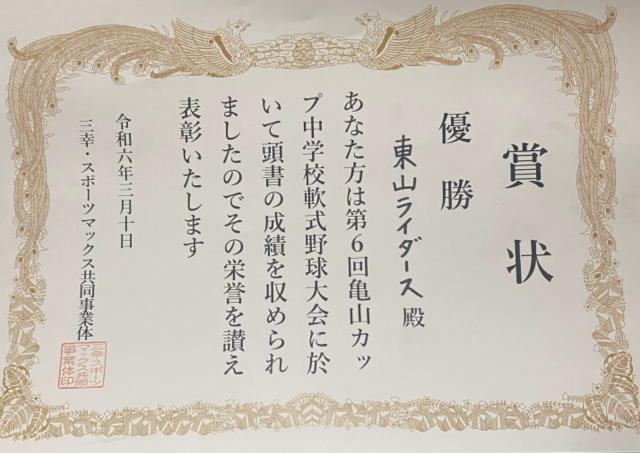 賞状
優勝
東山ライダース 殿
あなた方は第6回亀山カッ
プ中学校軟式野球大会に於
いて頭書の成績を収められ
ましたのでその栄誉を讃え
表彰いたします
令和六年三月十日
三幸・スポーツマックス共同事業体
三幸・スポーツ
マックス共同
事業体印